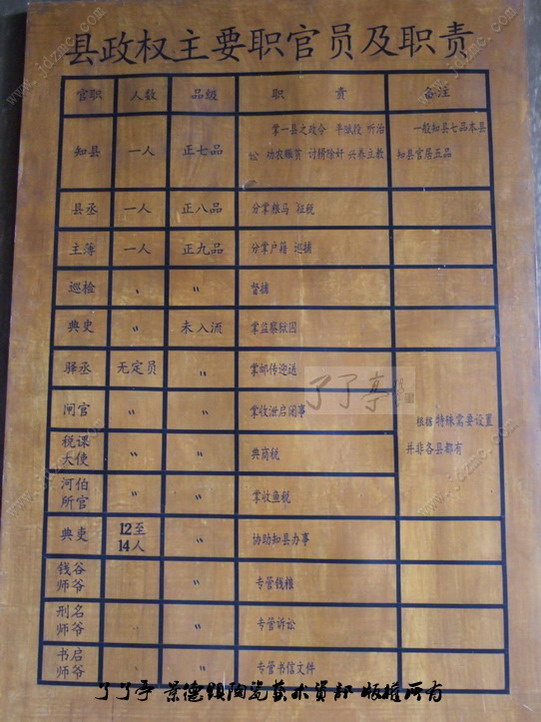 县政权主要职官员及职责
官职 人数 品级 职责 备注
知县 一人 正七品 掌一县之政令 平赋役 听治 一般知县七品本县
讼 劝农赈贫 讨猾除奸 兴养立教 知县官居五品
县丞 一人 正八品 分掌粮马 征税
主薄 一人 正九品 分掌户籍 巡捕
巡检 〃 〃 督捕
典史 〃 未入流 掌监察狱囚
驿丞 无定员 〃 掌邮传迎送
闸官 〃 〃 掌收泄启闭事 根据特殊需要设置
税课 〃 〃 典商税 并非各县都有
大使
河伯 〃 〃 掌收鱼税
所官
典吏 12至 〃 协助知县办事
14人
钱谷 〃 专管钱粮
师爷
刑名 〃 专管诉讼
师爷
书启 〃 专管书信文件
师爷
了了亭
了了亭 景德镇陶瓷艺术资讯 版权所有
www.jdzmc.com